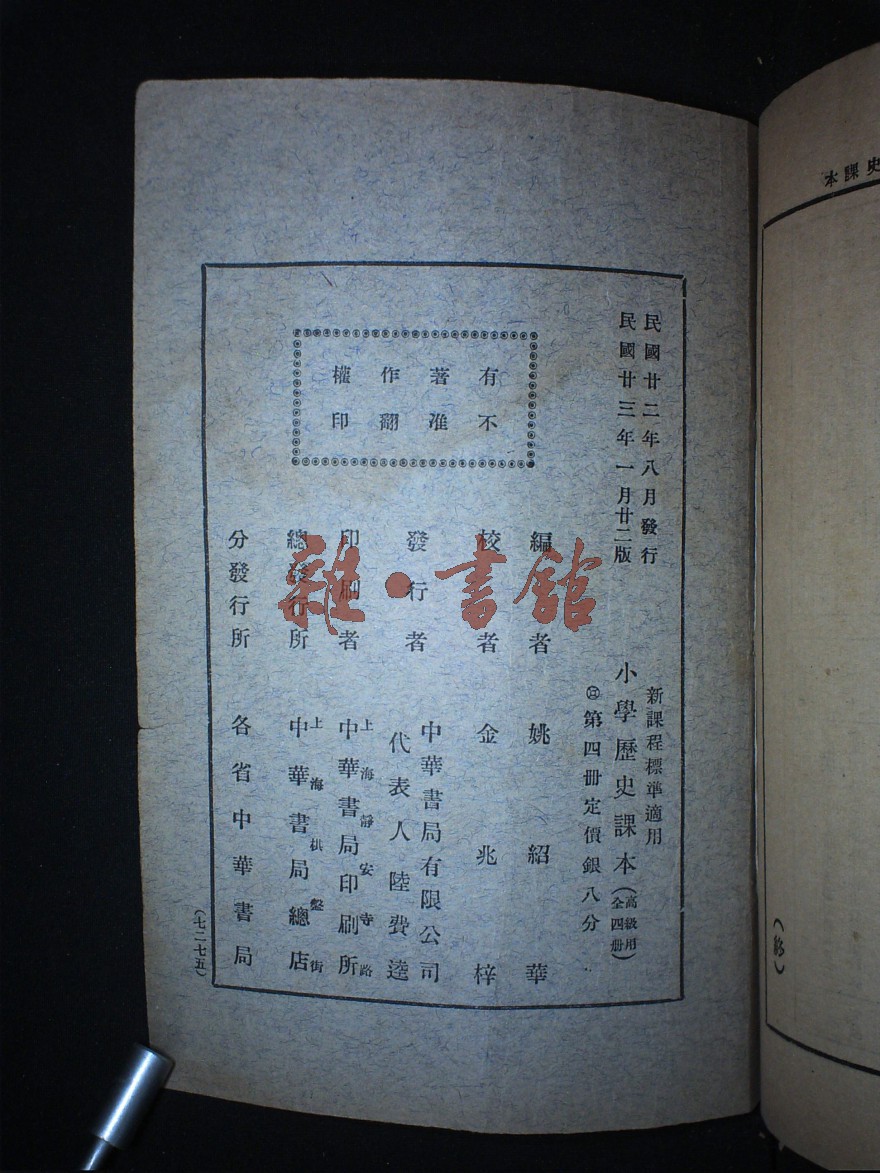 民國廿二年八月發行
民國廿三年一月廿二版
新課程標準適用
小學歷史課本(高級用全四册)
第四册定價銀八分
有著作權
不准翻印
編者 姚紹華
校者 金兆梓
發行者 中華書局有限公司
代表人 陸費逵
印刷者 上海靜安寺路
中華書局印刷所
總發行所 上海棋盤街
中華書局總店
分發行所 各省中華書局
(七二七五)
雜·書館
史課本